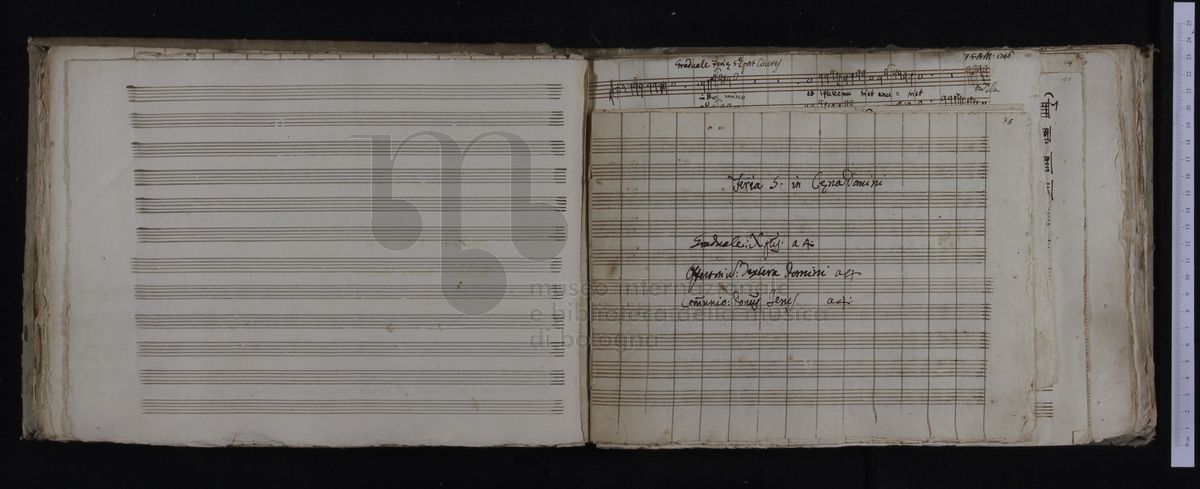 Graduale Feria 5ª post Cineres
Domino
et ipse enu triet enu = triet
35
Feria 5. in Cęna Domini
Graduale: Xpũs. a 4
Offertoriũ: Dextera Domini a 4
Com̃unio: Domũs Jesus a 4.
museo internazionale
e biblioteca della musica
di bologna